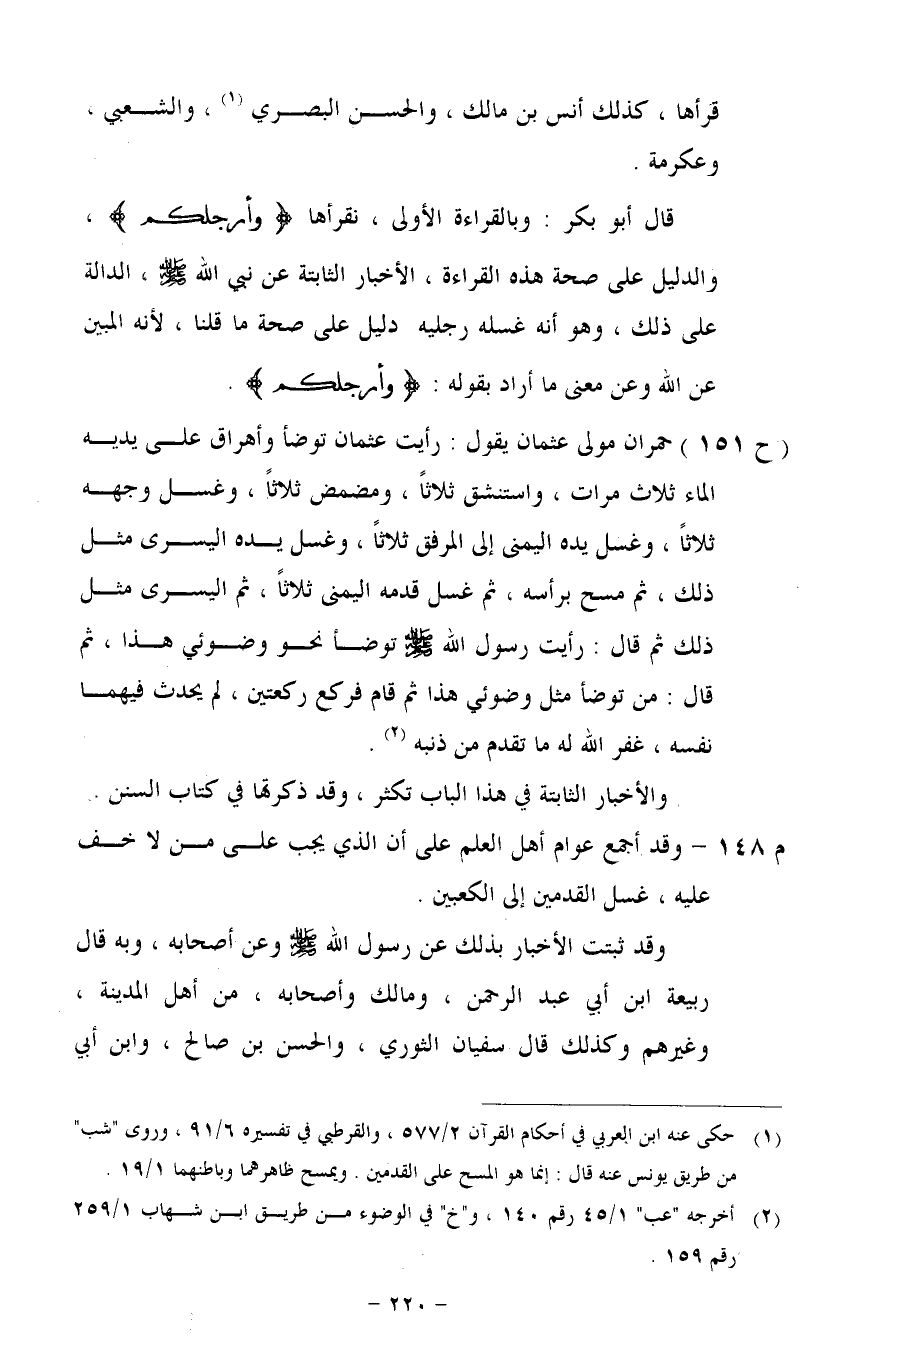 قرأها ، كذلك أنس بن مالك ، والحســن البصــري (١) ، والشــعبي ،
وعكرمة .
قال أبو بكر : وبالقراءة الأولى ، نقرأها ﴿ وأرجلكم ﴾ ،
والدليل على صحة هذه القراءة ، الأخبار الثابتة عن نبي الله ﷺ ، الدالة
على ذلك ، وهو أنه غسله رجليه دليل على صحة ما قلنا ، لأنه المبين
عن الله وعن معنى ما أراد بقوله : ﴿ وأرجلكم ﴾ .
( ح ١٥١ ) حمران مولى عثمان يقول : رأيت عثمان توضأ وأهراق علــى يديــه
الماء ثلاث مرات ، واستنشق ثلاثاً ، ومضمض ثلاثاً ، وغســل وجهــه
ثلاثاً ، وغسل يده اليمنى إلى المرفق ثلاثاً ، وغسل يــده اليسرى مثــل
ذلك ، ثم مسح برأسه ، ثم غسل قدمه اليمنى ثلاثاً ، ثم اليســرى مثــل
ذلك ثم قال : رأيت رسول الله ﷺ توضــأ نحــو وضــوئي هــذا ، ثم
قال : من توضأ مثل وضوئي هذا ثم قام فركع ركعتين ، لم يحدث فيهمــا
نفسه ، غفر الله له ما تقدم من ذنبه (٢) .
والأخبار الثابتة في هذا الباب تكثر ، وقد ذكرتها في كتاب السنن .
م ١٤٨ – وقد أجمع عوام أهل العلم على أن الذي يجب علــى مــن لا خــف
عليه ، غسل القدمين إلى الكعبين .
وقد ثبتت الأخبار بذلك عن رسول الله ﷺ وعن أصحابه ، وبه قال
ربيعة ابن أبي عبد الرحمن ، ومالك وأصحابه ، من أهل المدينة ،
وغيرهم وكذلك قال سفيان الثوري ، والحسن بن صالح ، وابن أبي
(١) حكى عنه ابن العربي في أحكام القرآن ٥٧٧/٢ ، والقرطبي في تفسيره ٩١/٦ ، وروى "شب"
من طريق يونس عنه قال : إنما هو المسح على القدمين . ويمسح ظاهرهما وباطنهما ١٩/١ .
(٢) أخرجه "عب" ٤٥/١ رقم ١٤٠ ، و"خ" في الوضوء مــن طريــق ابــن شــهاب ٢٥٩/١
رقم ١٥٩ .
– ٢٢٠ –